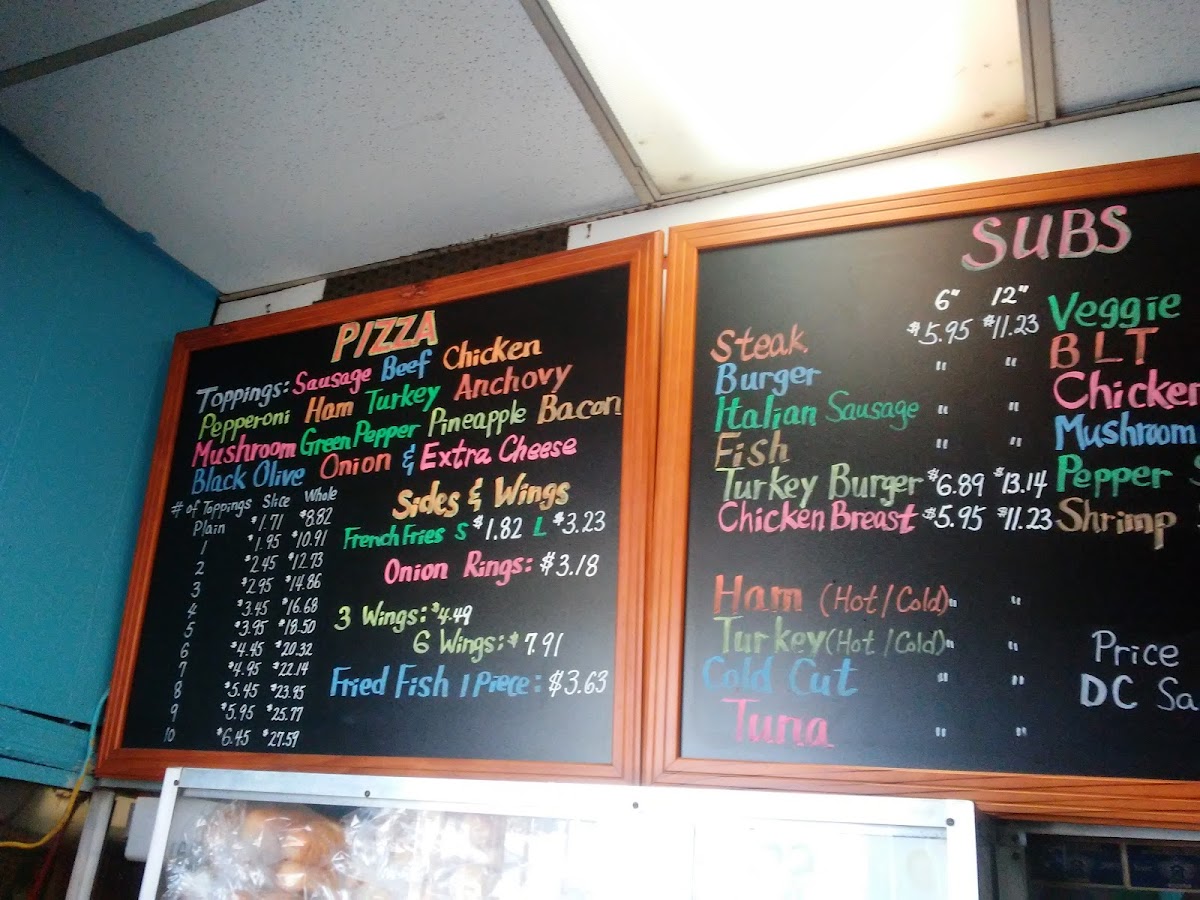 PIZZA
Toppings: Sausage Beef Chicken
Pepperoni Ham Turkey Anchovy
Mushroom Green Pepper Pineapple Bacon
Black Olive Onion & Extra Cheese
# of Toppings Slice Whole
Plain $1.71 $8.82
1 $1.95 $10.91
2 $2.45 $12.73
3 $2.95 $14.86
4 $3.45 $16.68
5 $3.95 $18.50
6 $4.45 $20.32
7 $4.95 $22.14
8 $5.45 $23.95
9 $5.95 $25.77
10 $6.45 $27.59
Sides & Wings
French Fries S $1.82 L $3.23
Onion Rings: $3.18
3 Wings: $4.49
6 Wings: $7.91
Fried Fish 1 Piece: $3.63
SUBS
6" 12"
Steak $5.95 $11.23
Burger " "
Italian Sausage " "
Fish " "
Turkey Burger $6.89 $13.14
Chicken Breast $5.95 $11.23
Ham (Hot/Cold) " "
Turkey (Hot/Cold) " "
Cold Cut " "
Tuna " "
Veggie
BLT
Chicken
Mushroom
Pepper S
Shrimp
Price
DC Sa